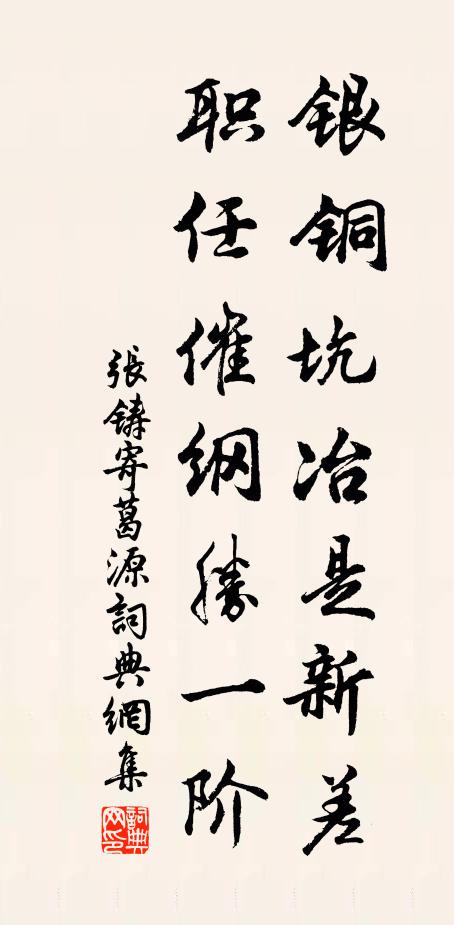 银铜坑冶是新差
职任催纲勝一阶
張鑄寄葛源詞典網集
詞典网印